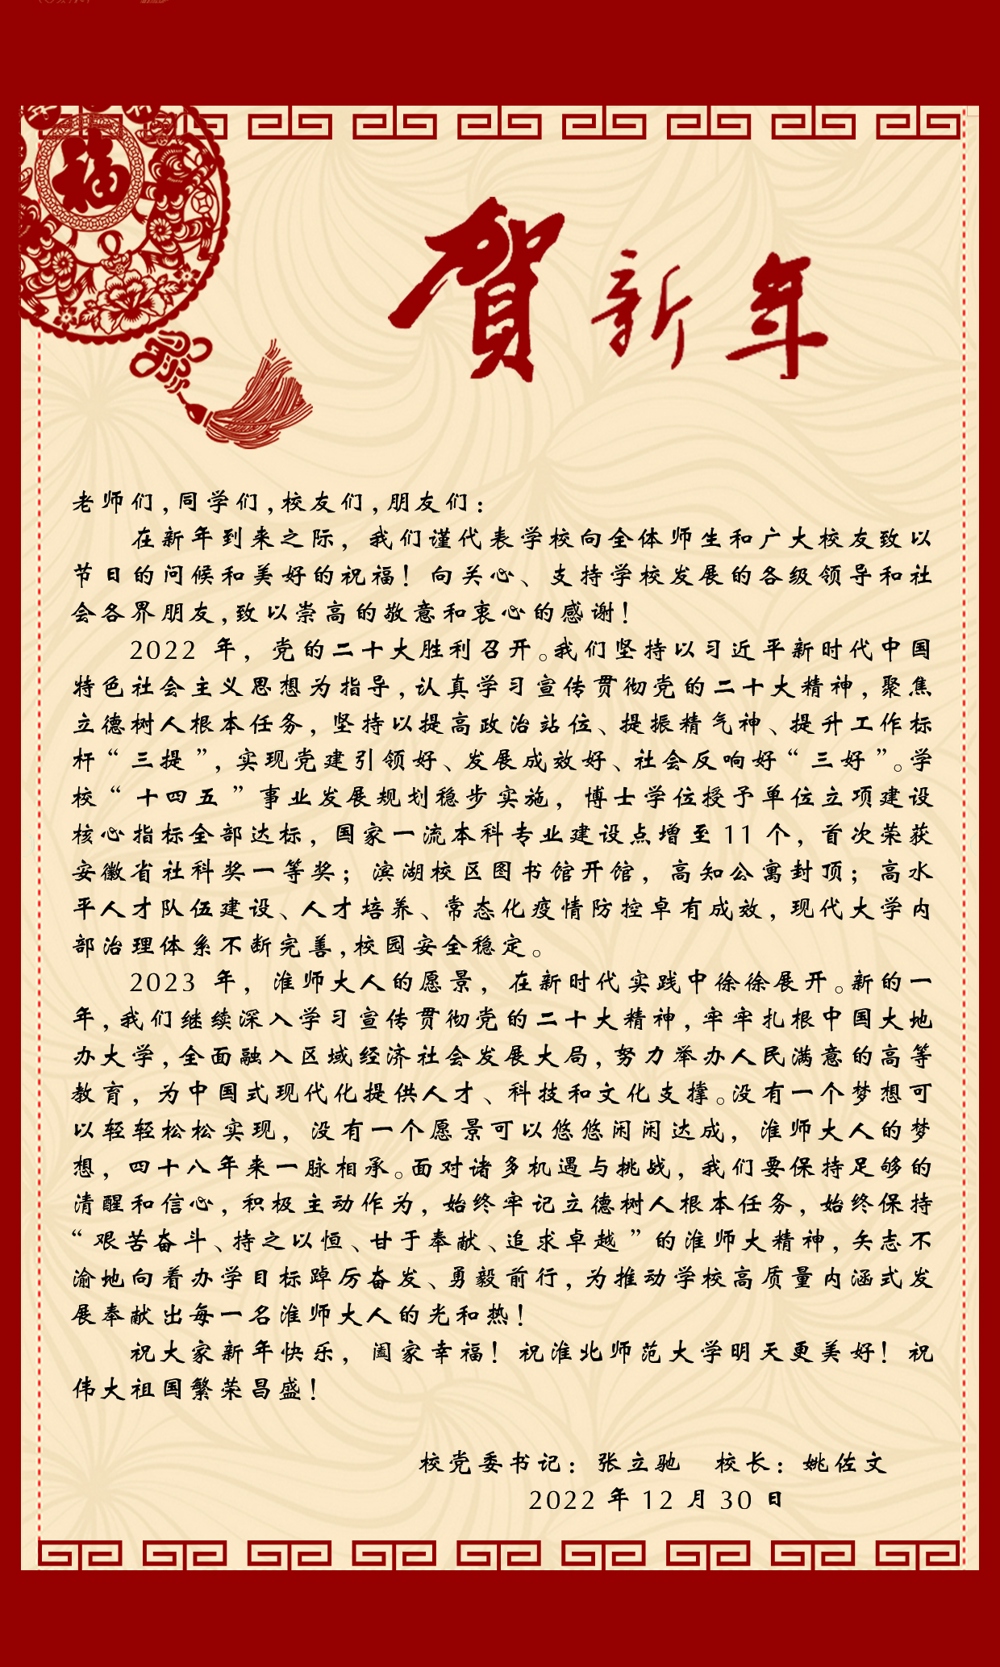 福
贺新年
老师们,同学们,校友们,朋友们:
在新年到来之际，我们谨代表学校向全体师生和广大校友致以
节日的问候和美好的祝福！向关心、支持学校发展的各级领导和社
会各界朋友,致以崇高的敬意和衷心的感谢！
2022 年，党的二十大胜利召开。我们坚持以习近平新时代中国
特色社会主义思想为指导,认真学习宣传贯彻党的二十大精神,聚焦
立德树人根本任务，坚持以提高政治站位、提振精气神、提升工作标
杆“三提”,实现党建引领好、发展成效好、社会反响好“三好”。学
校“十四五”事业发展规划稳步实施，博士学位授予单位立项建设
核心指标全部达标，国家一流本科专业建设点增至 11 个，首次荣获
安徽省社科奖一等奖；滨湖校区图书馆开馆，高知公寓封顶；高水
平人才队伍建设、人才培养、常态化疫情防控卓有成效，现代大学内
部治理体系不断完善,校园安全稳定。
2023 年，淮师大人的愿景，在新时代实践中徐徐展开。新的一
年,我们继续深入学习宣传贯彻党的二十大精神,牢牢扎根中国大地
办大学,全面融入区域经济社会发展大局,努力举办人民满意的高等
教育，为中国式现代化提供人才、科技和文化支撑。没有一个梦想可
以轻轻松松实现，没有一个愿景可以悠悠闲闲达成，淮师大人的梦
想，四十八年来一脉相承。面对诸多机遇与挑战，我们要保持足够的
清醒和信心，积极主动作为，始终牢记立德树人根本任务，始终保持
“艰苦奋斗、持之以恒、甘于奉献、追求卓越”的淮师大精神,矢志不
渝地向着办学目标踔厉奋发、勇毅前行,为推动学校高质量内涵式发
展奉献出每一名淮师大人的光和热！
祝大家新年快乐，阖家幸福！祝淮北师范大学明天更美好！祝
伟大祖国繁荣昌盛！
校党委书记：张立驰 校长：姚佐文
2022 年 12 月 30 日